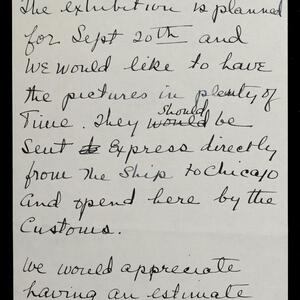 The exhibition is planned
for Sept 20th and
we would like to have
the pictures in plenty of
Time. They would should be
Sent to Express directly
from The Ship to Chicago
and opend here by the
Customs.
We would appreciate
having an estimate